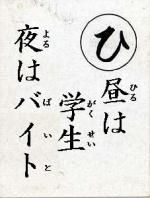 ひ
昼は
ひる
学生
がくせい
夜はバイト
よるばいと